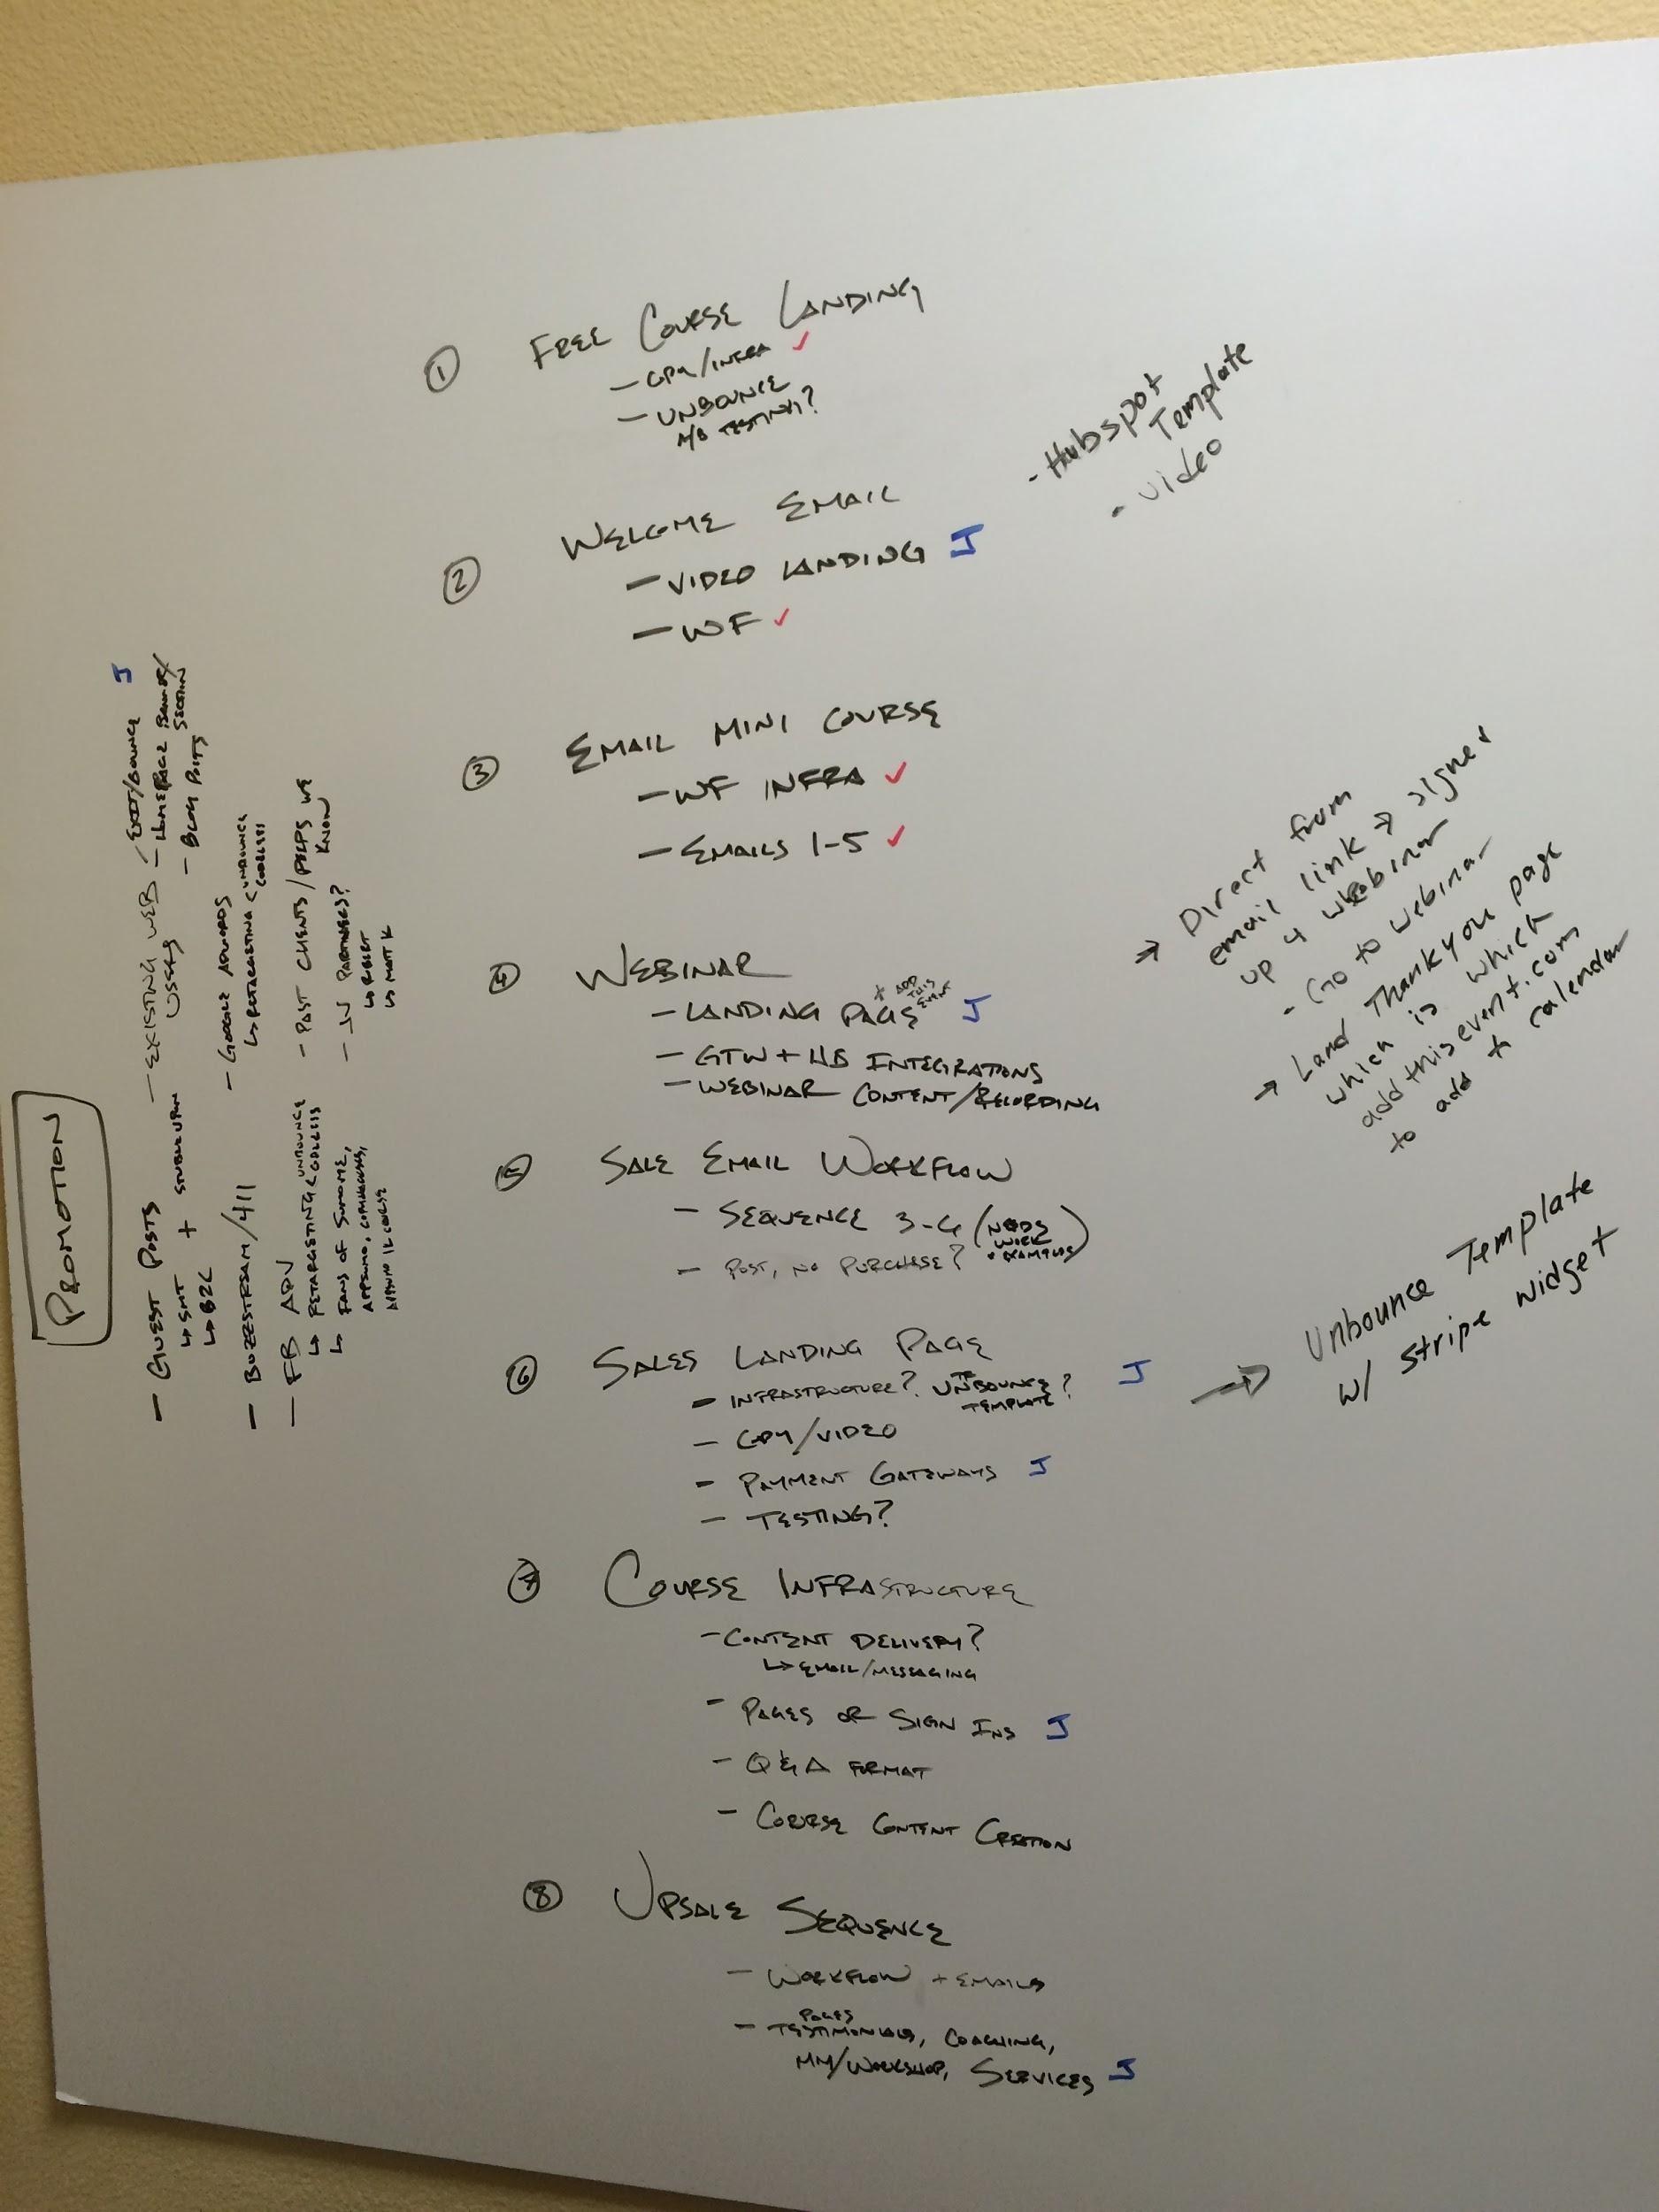 ① FREE COURSE LANDING
- COPY/INFRA ✓
- UNBOUNCE
A/B TESTING?
- Hubspot
Template
- Video
② WELCOME EMAIL
- VIDEO LANDING J
- WF ✓
③ EMAIL MINI COURSE
- WF INFRA ✓
- EMAILS 1-5 ✓
④ WEBINAR
- LANDING PAGE + ADD THIS EVENT J
- GTW + HB INTEGRATIONS
- WEBINAR CONTENT/RECORDING
→ Direct from
email link → signed
up 4 webinar
- Go to webinar
→ Land Thank you page
which is which
addthisevent.com
to add to calendar
⑤ SALE EMAIL WORKFLOW
- SEQUENCE 3-4 (NEEDS
WORK
+ EXAMPLES)
- POST, NO PURCHASE?
⑥ SALES LANDING PAGE J
- INFRASTRUCTURE? UNBOUNCE?
TEMPLATE
- COPY/VIDEO
- PAYMENT GATEWAYS J
- TESTING?
→ Unbounce Template
w/ stripe widget
⑦ COURSE INFRASTRUCTURE
- CONTENT DELIVERY?
↳ EMAIL/MESSAGING
- PAGES OR SIGN INS J
- Q&A FORMAT
- COURSE CONTENT CREATION
⑧ UPSALE SEQUENCE
- WORKFLOW + EMAILS
PAGES
- TESTIMONIALS, COACHING,
MM/WORKSHOP, SERVICES J
PROMOTION
- GUEST POSTS
↳ SMT + STUMBLEUPON
↳ B2C
- BUZZSTREAM/411
- FB ADV
↳ RETARGETING UNBOUNCE
↳ FANS OF SUMOME,
APPSUMO,
APPSUMO COURSE
- EXISTING WEB
USERS
- EXIT/BOUNCE J
- HOMEPAGE BANNER/
SECTION
- BLOG POSTS
- GOOGLE ADWORDS
↳ RETARGETING UNBOUNCE
- PAST CLIENTS/PEEPS WE
KNOW
- JV PARTNERS?
↳ ROBERT
↳ MATT K